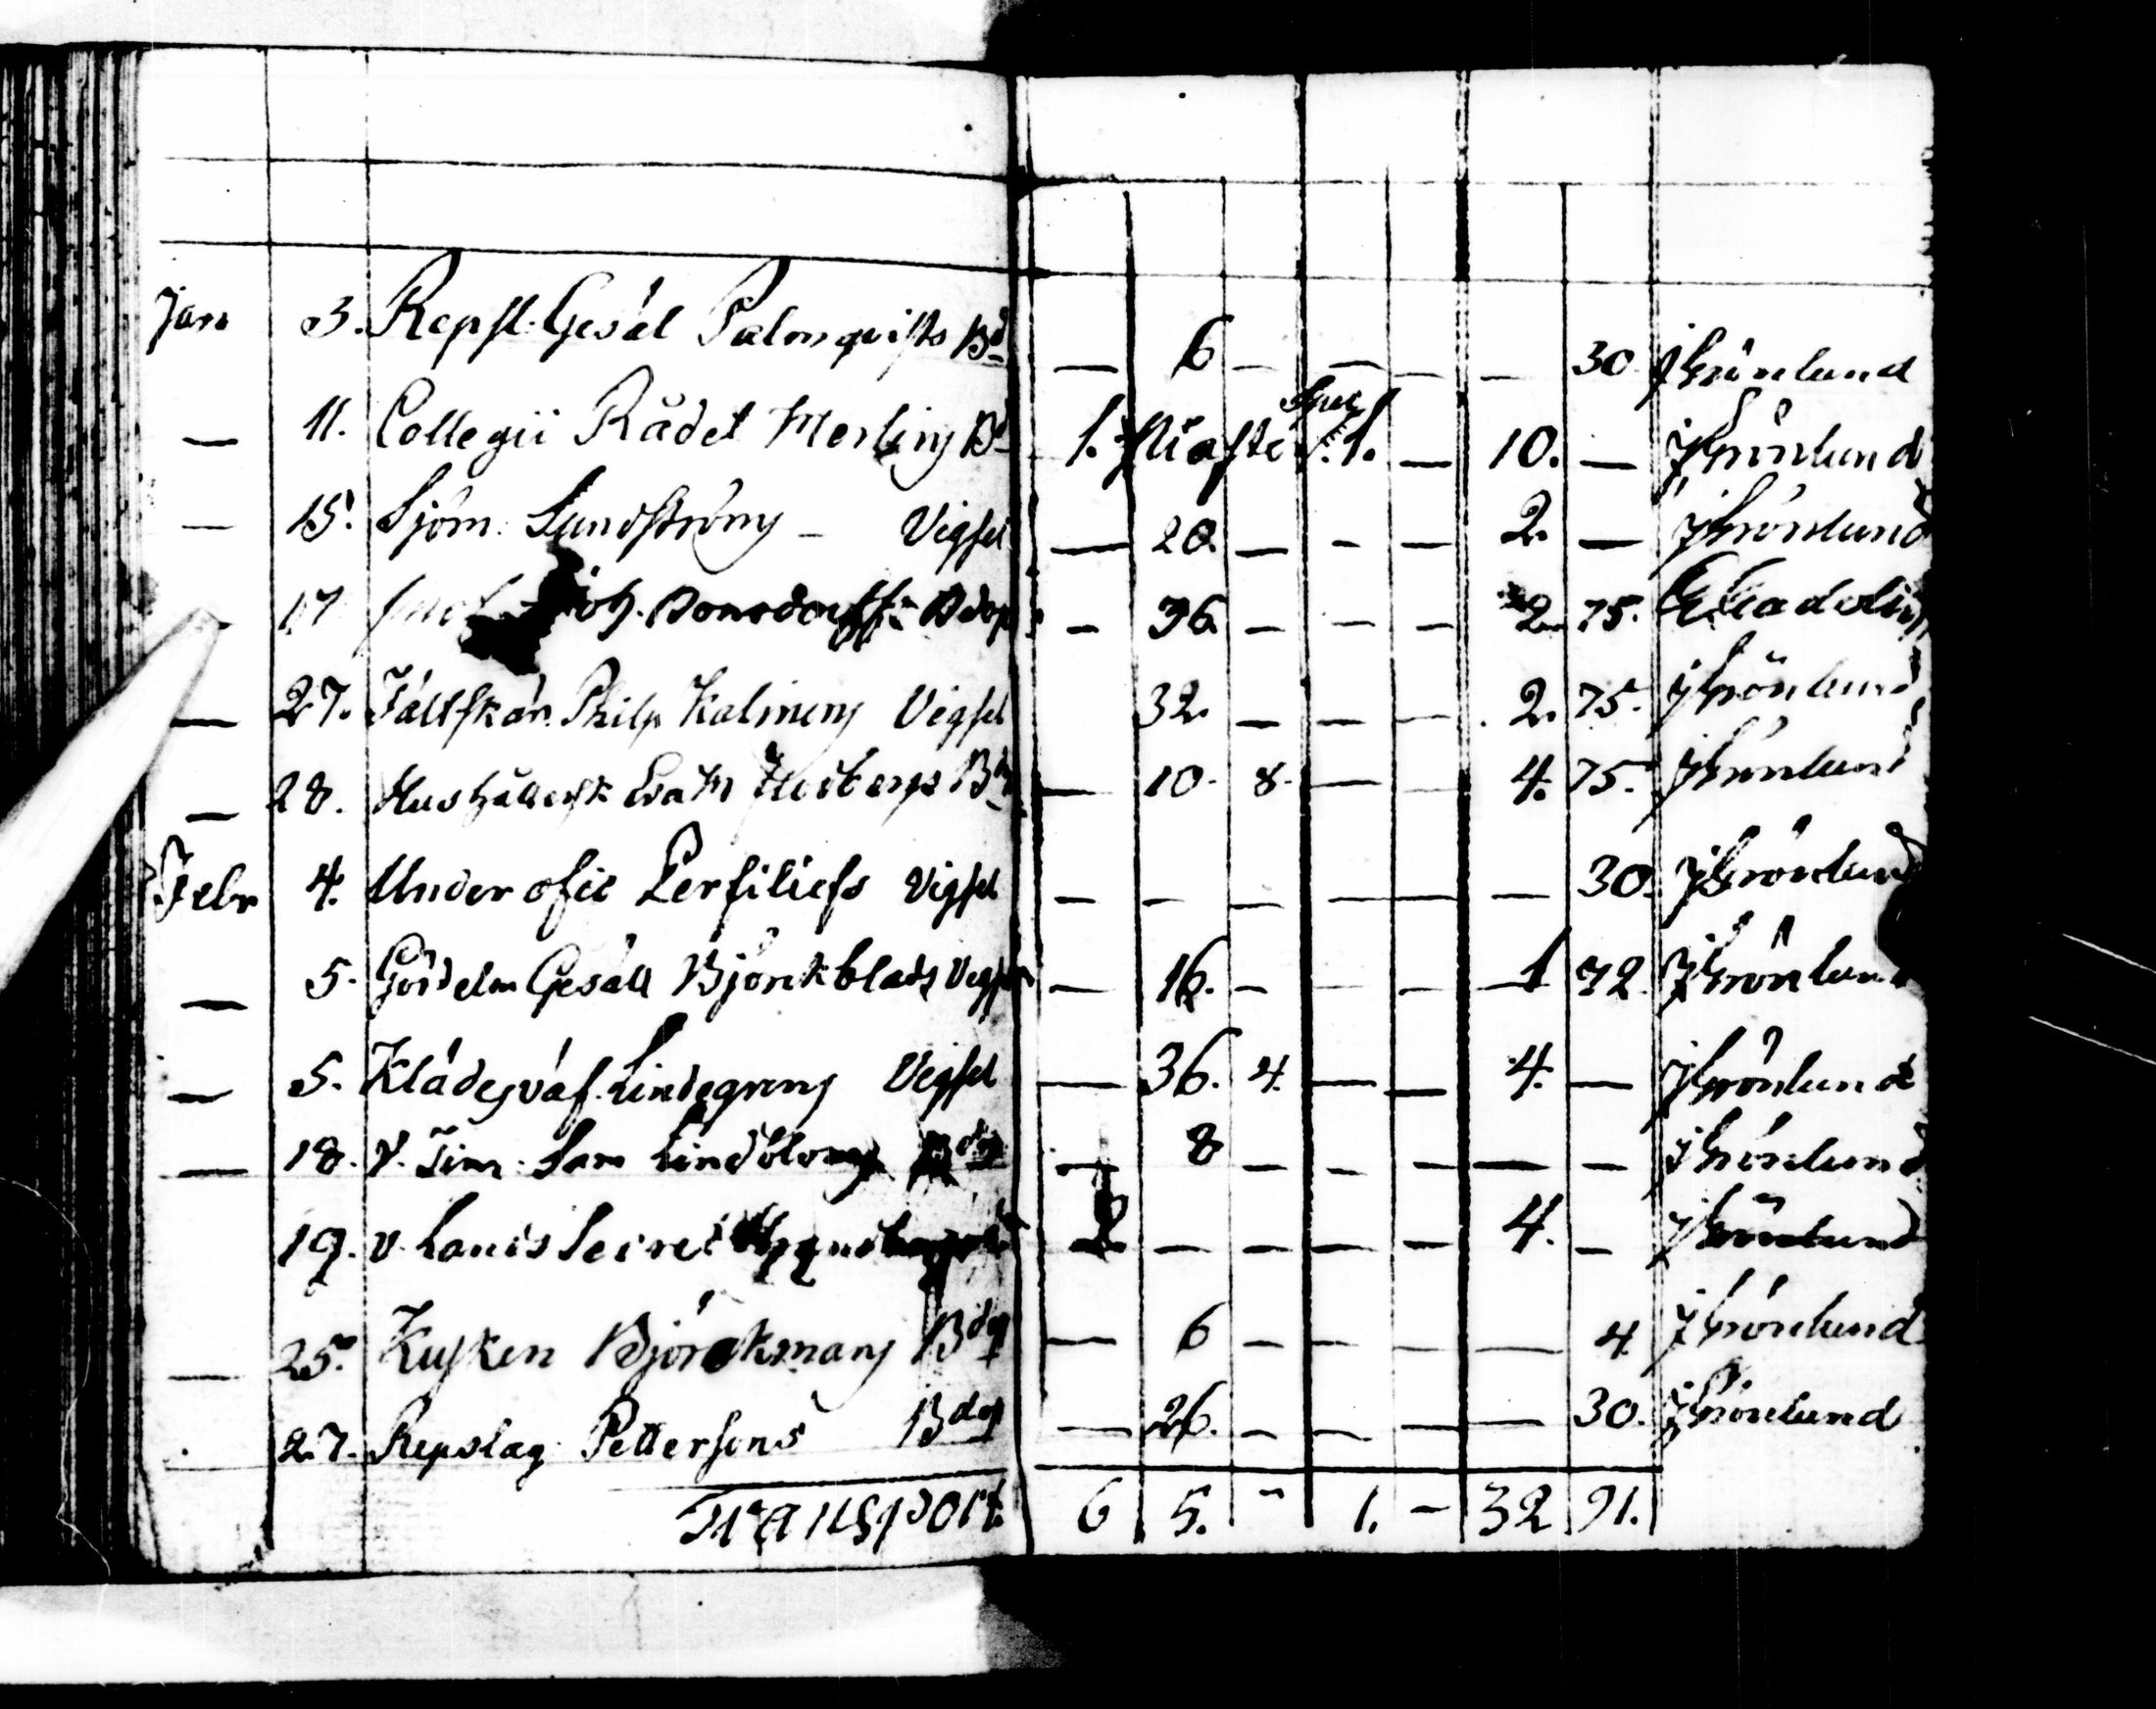 Jan 3. Repsl: Gesäl Palmqvists Bd — 6 — — — — 30 J Grönlund
— 11. Collegii Rådet Merlins Bd 1. Spec 1. — 10. — J Grönlund
— 15. Sjöm. Lundströms — Vigsel — 20. — — — 2. — J Grönlund
— 17 Joh. Bonsdorffs — 36. — — — 2 75. G Gadolin
— 27. Fältskär. Philip Kalinens Vigsel 32. — — — 2. 75. J Grönlund
— 28. Hushållersk Eva Bdg — 10. 8. — — 4. 75. J Grönlund
Febr 4. Underofic Perfiliefs Vigsel — — — — — — 30. J Grönlund
— 5. Gördelm Gesäll Björkblads Vigsel — 16. — — — 1 72. J Grönlund
— 5. Klädesväf. Lindegrens Vigsel — 36. 4. — — 4. — J Grönlund
— 18. V. Tim. Sam Lindbloms Bdg — 8 — — — — — J Grönlund
19. V. Lands Secret — — — — 4. — J Grönlund
— 25. Kusken Björckmans Bdg — 6 — — — — 4. J Grönlund
27. Repslag. Pettersons Bdg — 26. — — — — 30. J Grönlund
Transport. 6 5. — 1. — 32 91.